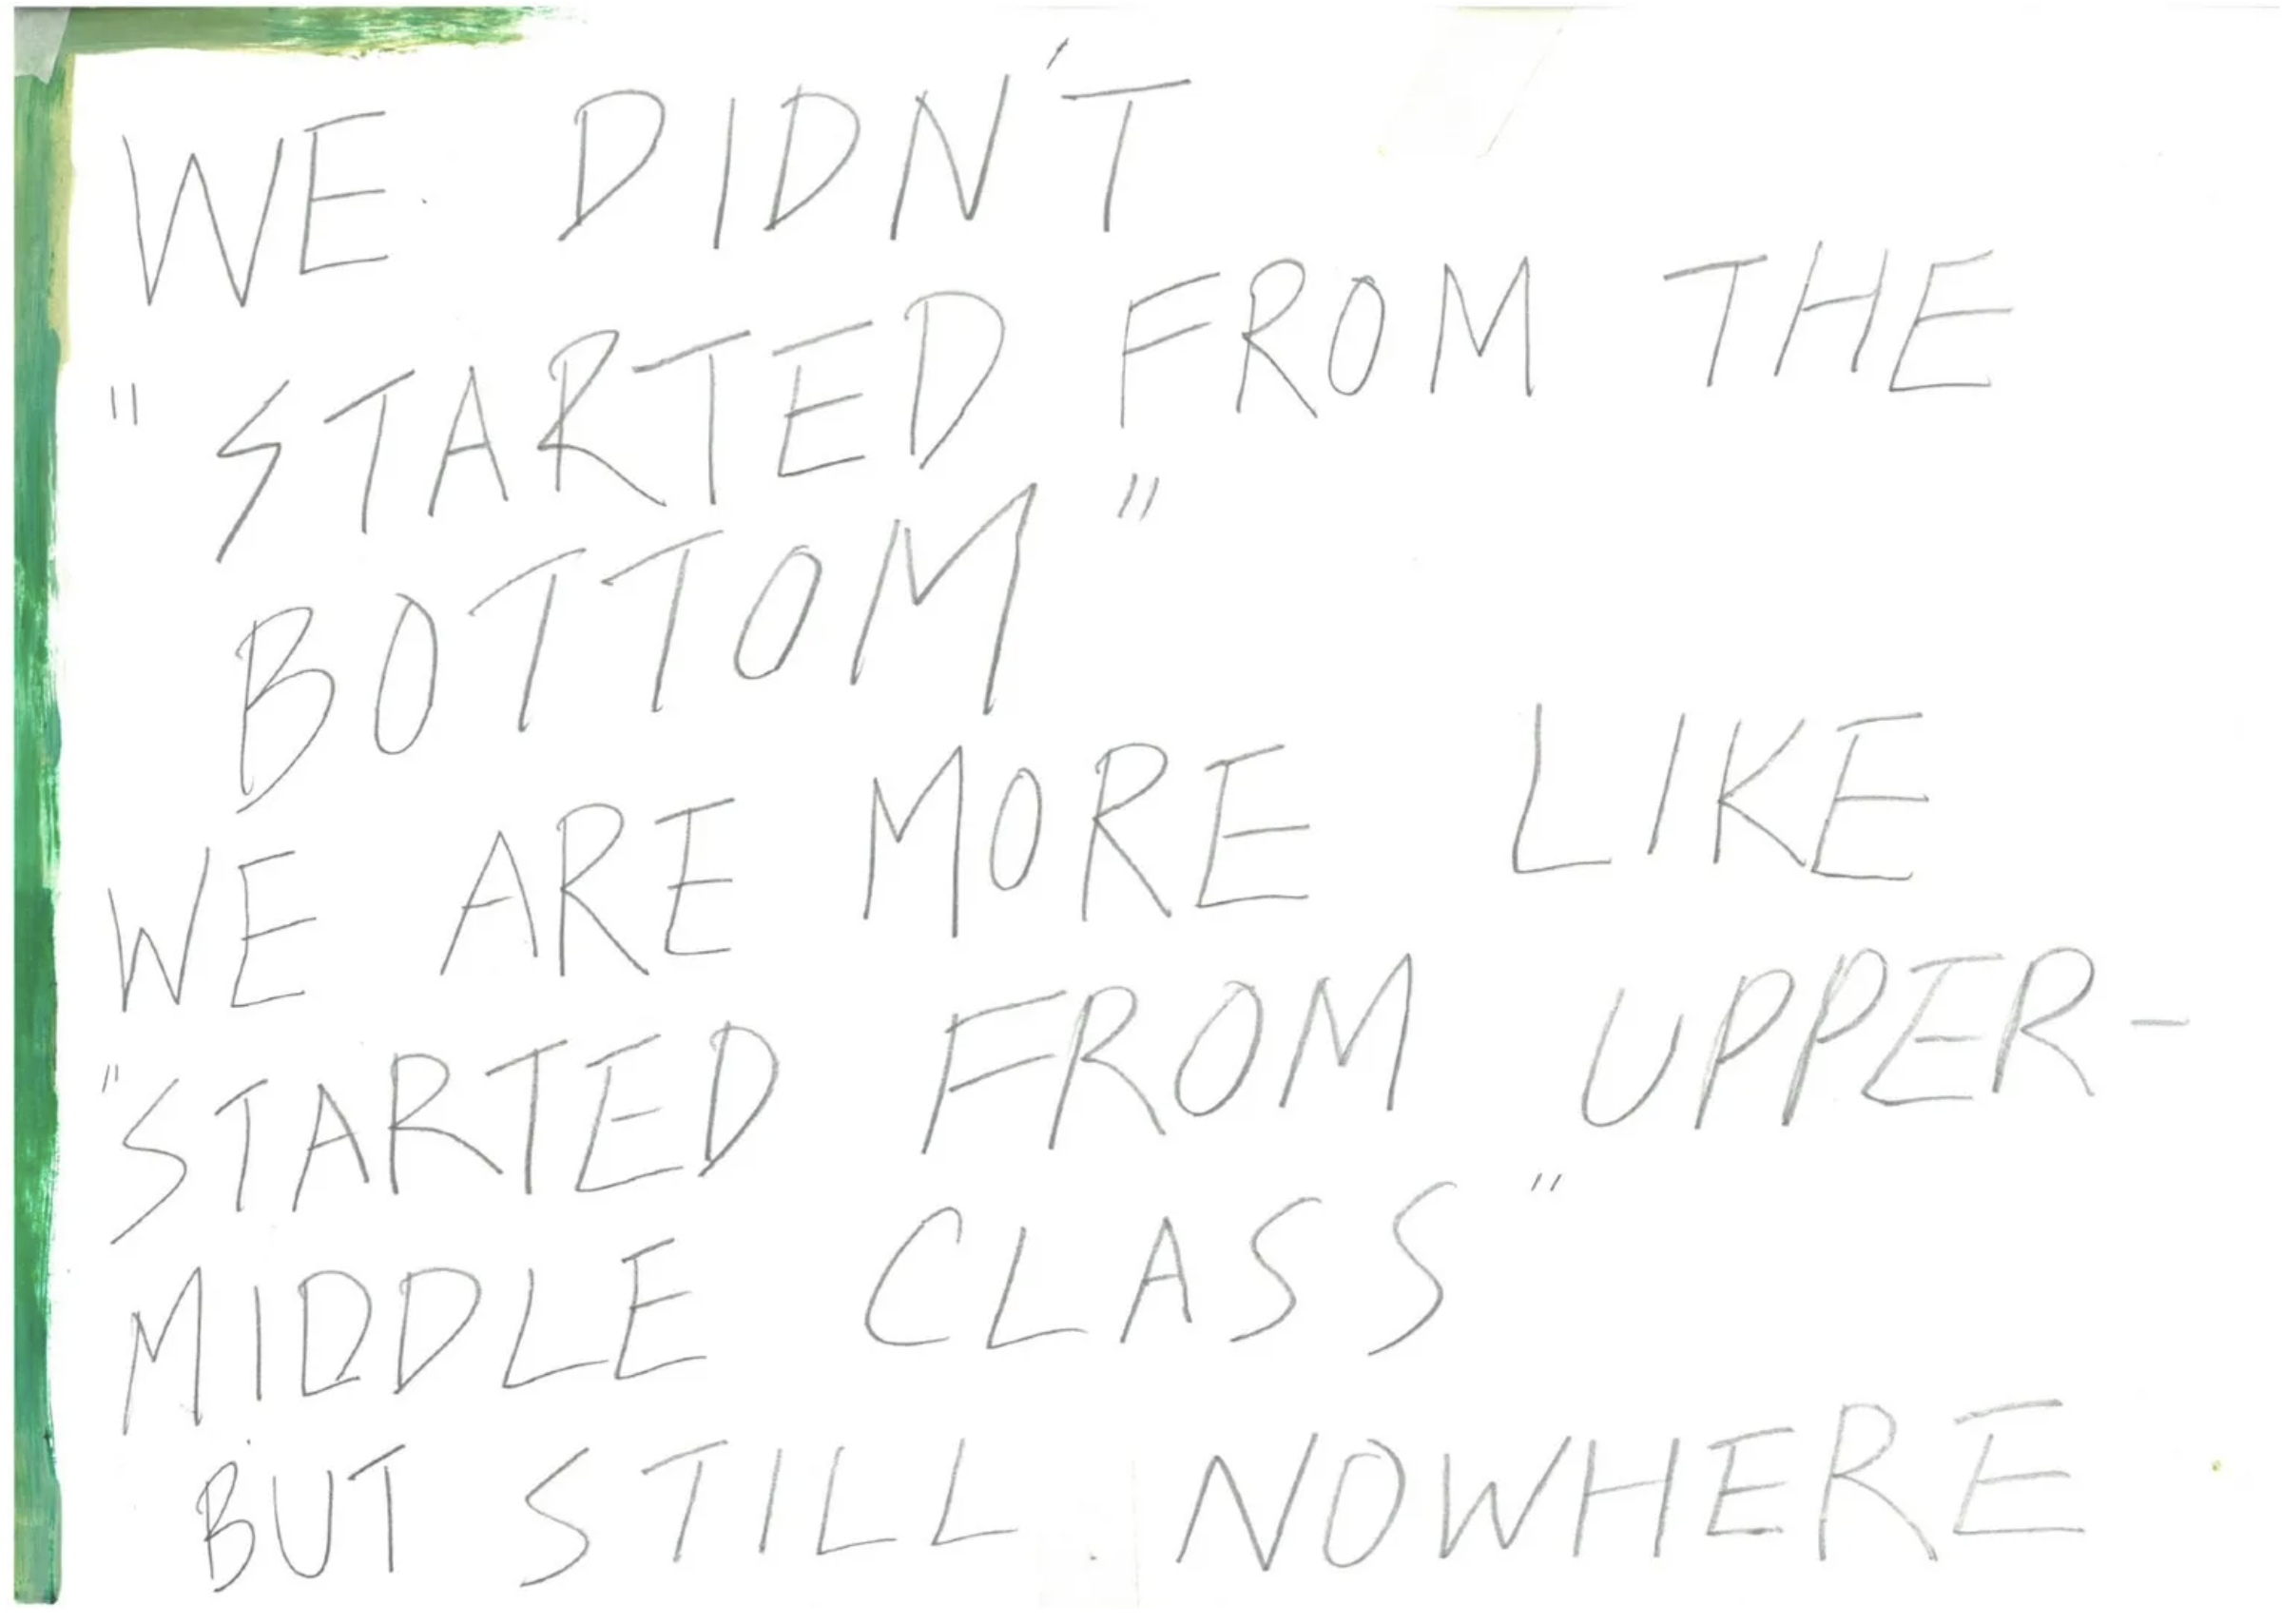 WE DIDN'T
"STARTED FROM THE
BOTTOM"
WE ARE MORE LIKE
"STARTED FROM UPPER-
MIDDLE CLASS"
BUT STILL NOWHERE